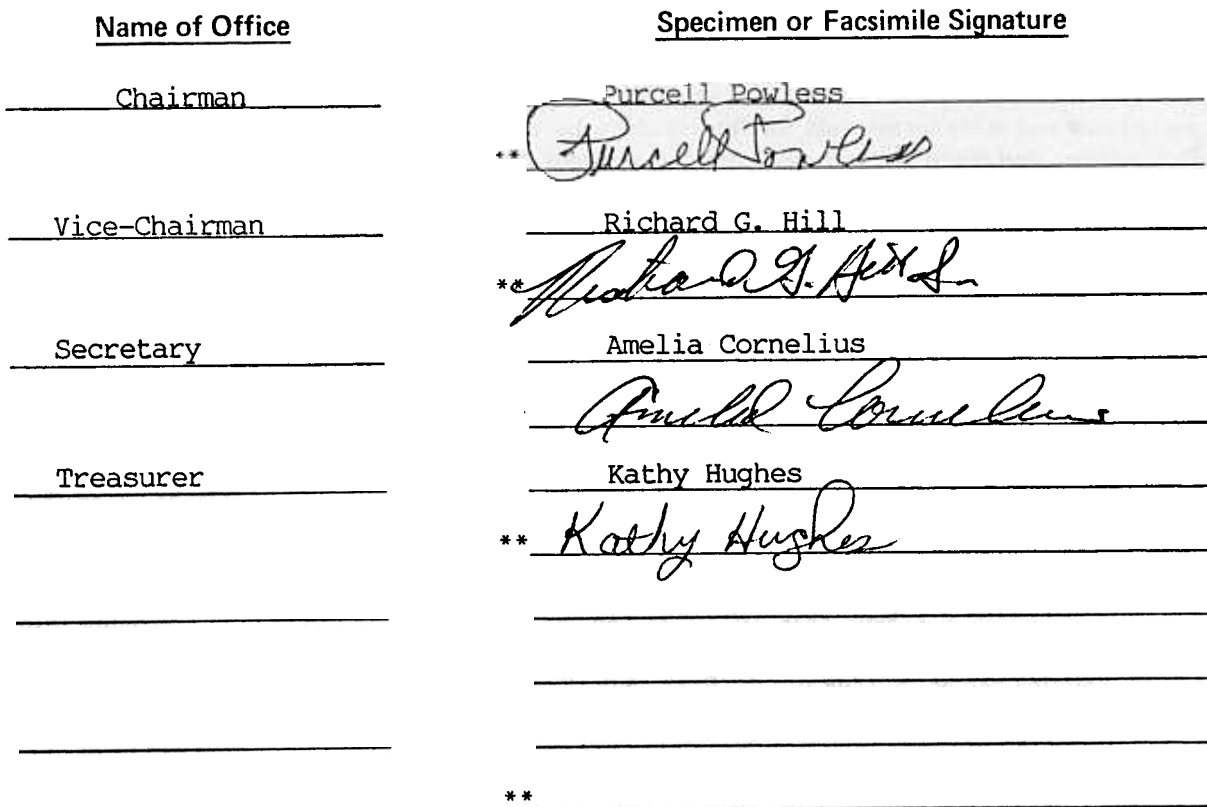 Name of Office Specimen or Facsimile Signature
Chairman Purcell Powless
** Purcell Powless
Vice-Chairman Richard G. Hill
** Richard G. Hill Sr.
Secretary Amelia Cornelius
Amelia Cornelius
Treasurer Kathy Hughes
** Kathy Hughes
**